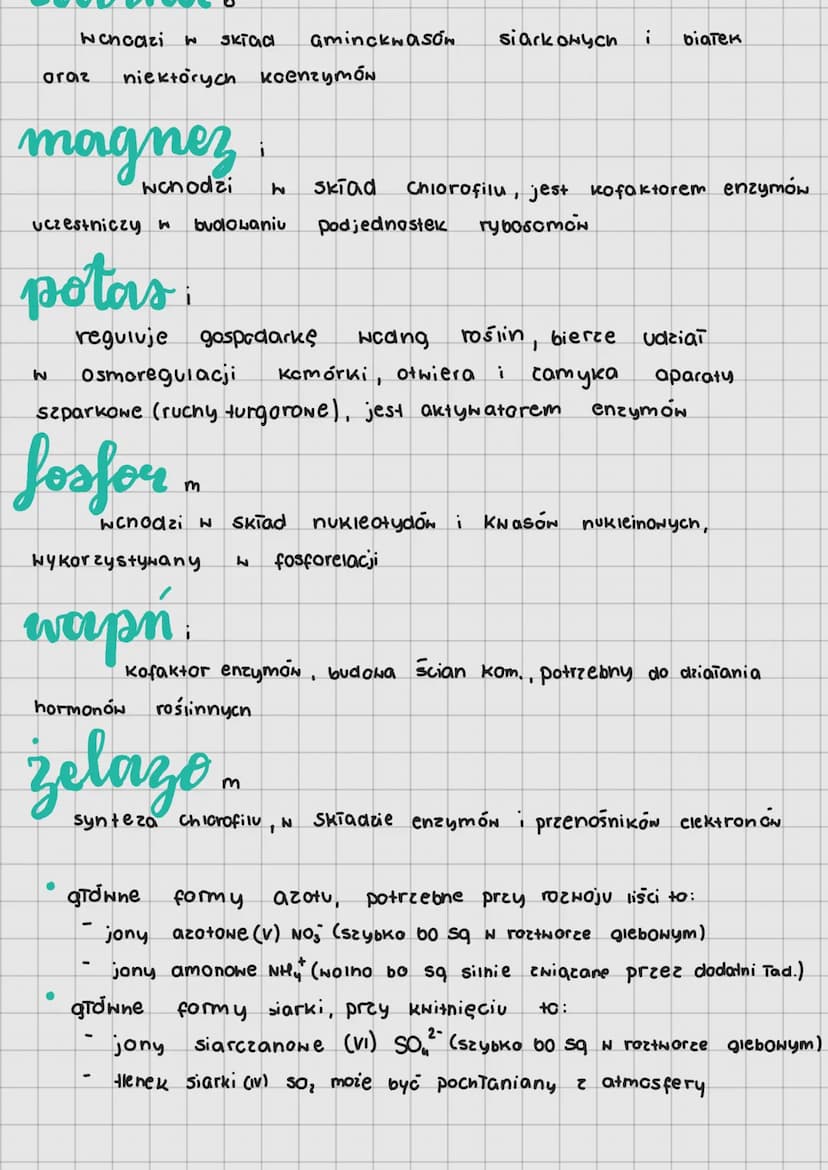 wchodzi w skład aminokwasów siarkowych i białek
oraz niektórych koenzymów
magnez i
wchodzi w skład chlorofilu, jest kofaktorem enzymów
uczestniczy w budowaniu podjednostek rybosomów
potas i
reguluje gospodarkę wodną roślin, bierze udział
w osmoregulacji komórki, otwiera i zamyka aparaty
szparkowe (ruchy turgorowe), jest aktywatorem enzymów
fosfor m
wchodzi w skład nukleotydów i kwasów nukleinowych,
wykorzystywany w fosforelacji
wapń i
kofaktor enzymów, budowa ścian kom., potrzebny do działania
hormonów roślinnych
żelazo m
synteza chlorofilu, w składzie enzymów i przenośników elektronów
• główne formy azotu, potrzebne przy rozwoju liści to:
- jony azotowe (V) NO₃⁻ (szybko bo są w roztworze glebowym)
- jony amonowe NH₄⁺ (wolno bo są silnie związane przez dodatni ład.)
• główne formy siarki, przy kwitnięciu to:
- jony siarczanowe (VI) SO₄²⁻ (szybko bo są w roztworze glebowym)
- tlenek siarki (IV) SO₂ może być pochłaniany z atmosfery